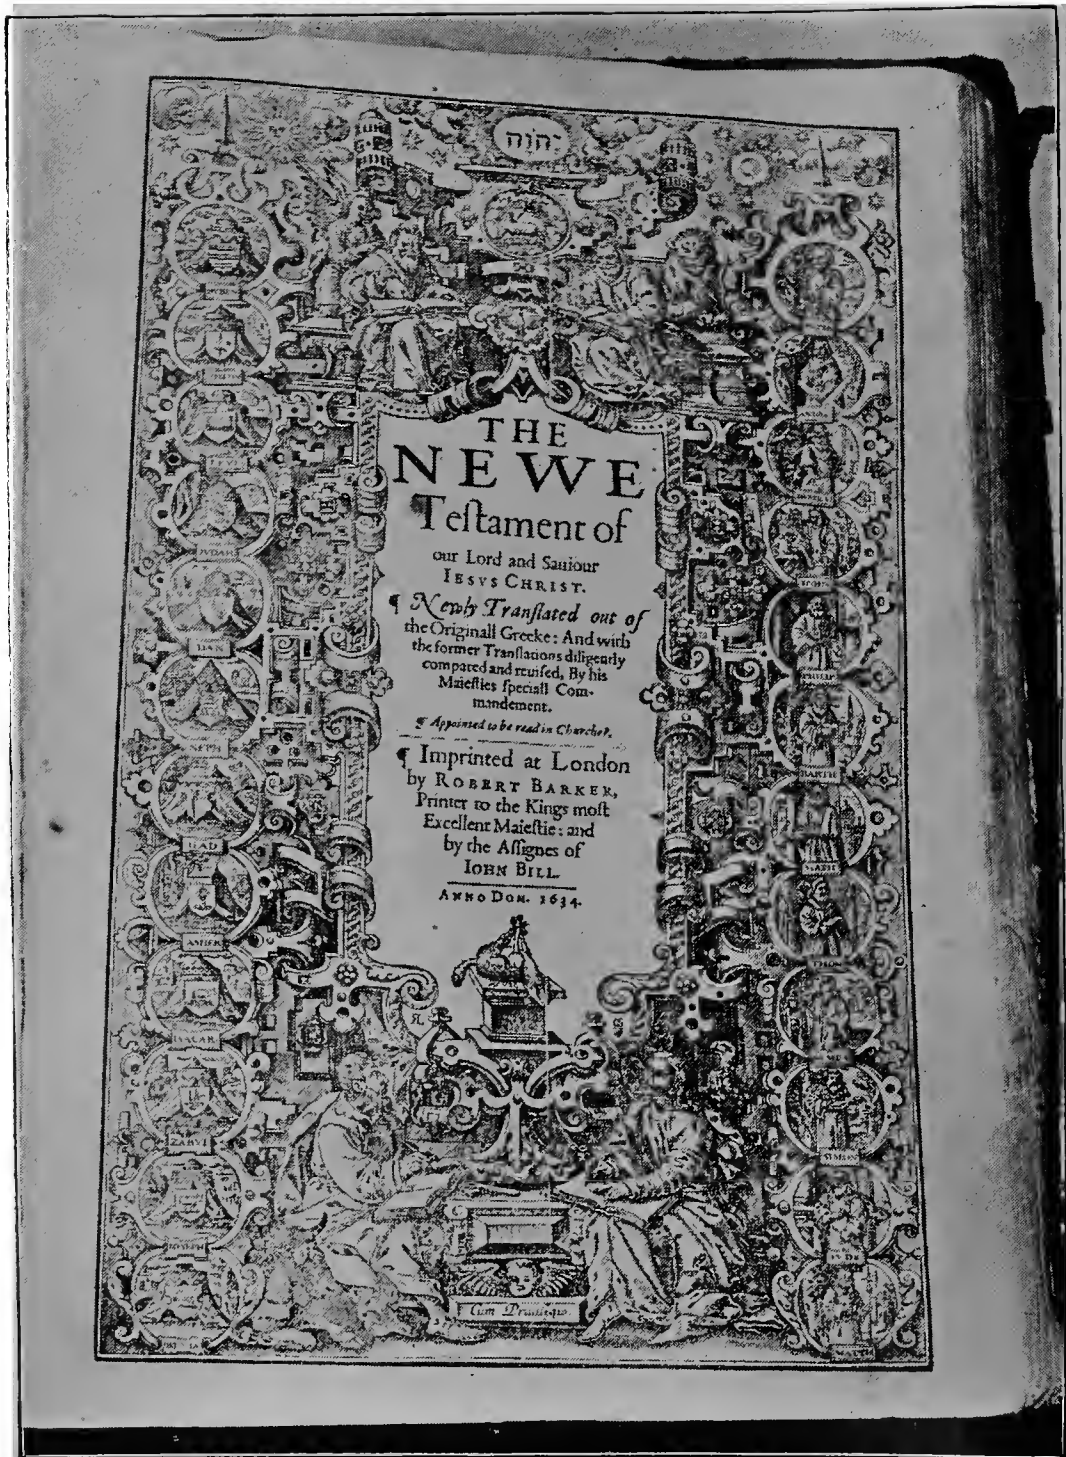 יהוה
THE
NEWE
Teſtament of
our Lord and Sauiour
IESVS CHRIST.
¶ Newly Tranſlated out of
the Originall Greeke: And with
the former Tranſlations diligently
compared and reuiſed, By his
Maieſties ſpeciall Com-
mandement.
¶ Appointed to be read in Churches.
¶ Imprinted at London
by ROBERT BARKER,
Printer to the Kings moſt
Excellent Maieſtie: and
by the Aſſignes of
IOHN BILL.
ANNO DOM. 1634.
Cum Priuilegio.
IVDAH
DAN
NEPH
ASHER
ISACAR
PHILIP
BARTH